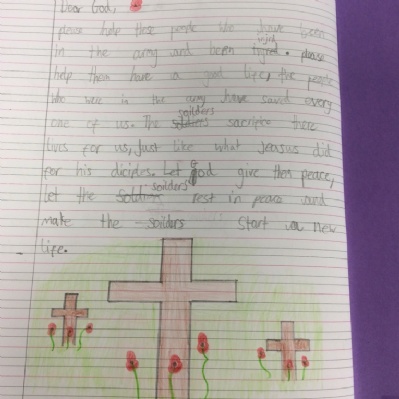 Dear God,
please help these people who have been
in the army and been injrd. please
help them have a good life, the people
who were in the army have saved every
one of us. The soilders sacrifice there
lives for us, just like what Jeasus did
for his diciples. Let God give them peace,
let the soilders rest in peace and
make the soilders start a new
life.